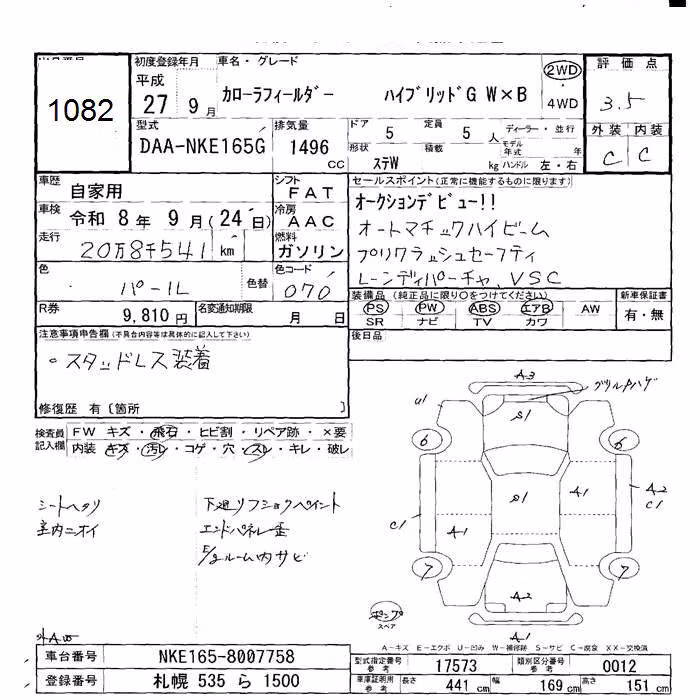 1082
初度登録年月 車名・グレード 評価点
平成 27 9月 カローラフィールダー ハイブリッドG W×B 2WD ・ 4WD 3.5
外装 内装
C C
型式 排気量 ドア 5 定員 5人 ディーラー・並行
DAA-NKE165G 1496 cc 形状 ステW 積載 kg モデル年式 年 ハンドル 左・右
車歴 自家用 シフト FAT セールスポイント(正常に機能するものに限ります)
車検 令和 8年 9月(24日) 冷房 AAC オークションデビュー!!
走行 20万8千541 km 燃料 ガソリン オートマチックハイビーム
プリクラッシュセーフティ
色 パール 色替 色コード 070 レーンディパーチャ、VSC
R券 9,810円 名変通知期限 月 日 装備品(純正品に限り○をつけてください) 新車保証書
PS PW ABS エアB AW 有・無
SR ナビ TV カワ
注意事項申告欄(不具合内容等は具体的に記入して下さい) 後日品
・スタッドレス装着
修復歴 有〔箇所 〕
検査員記入欄 FW キズ・飛石・ヒビ割・リペア跡・×要
内装 キズ・汚レ・コゲ・穴・スレ・キレ・破レ
シートヘタリ 下廻リフショクペイント
室内ニオイ エンドパネル歪
E/gルーム内サビ
A3 グリルPハゲ
U1 S1
6 6
S1 A1 A2
C1 C1
A1
7 7
A2
スペア A1
外AW
A-キズ E-エクボ U-凹み W-補修跡 S-サビ C-腐食 XX-交換済
車台番号 NKE165-8007758
登録番号 札幌 535 ら 1500
型式指定番号 参考 17573 類別区分番号 参考 0012
車庫証明用 参考 長さ 441 cm 幅 169 cm 高さ 151 cm